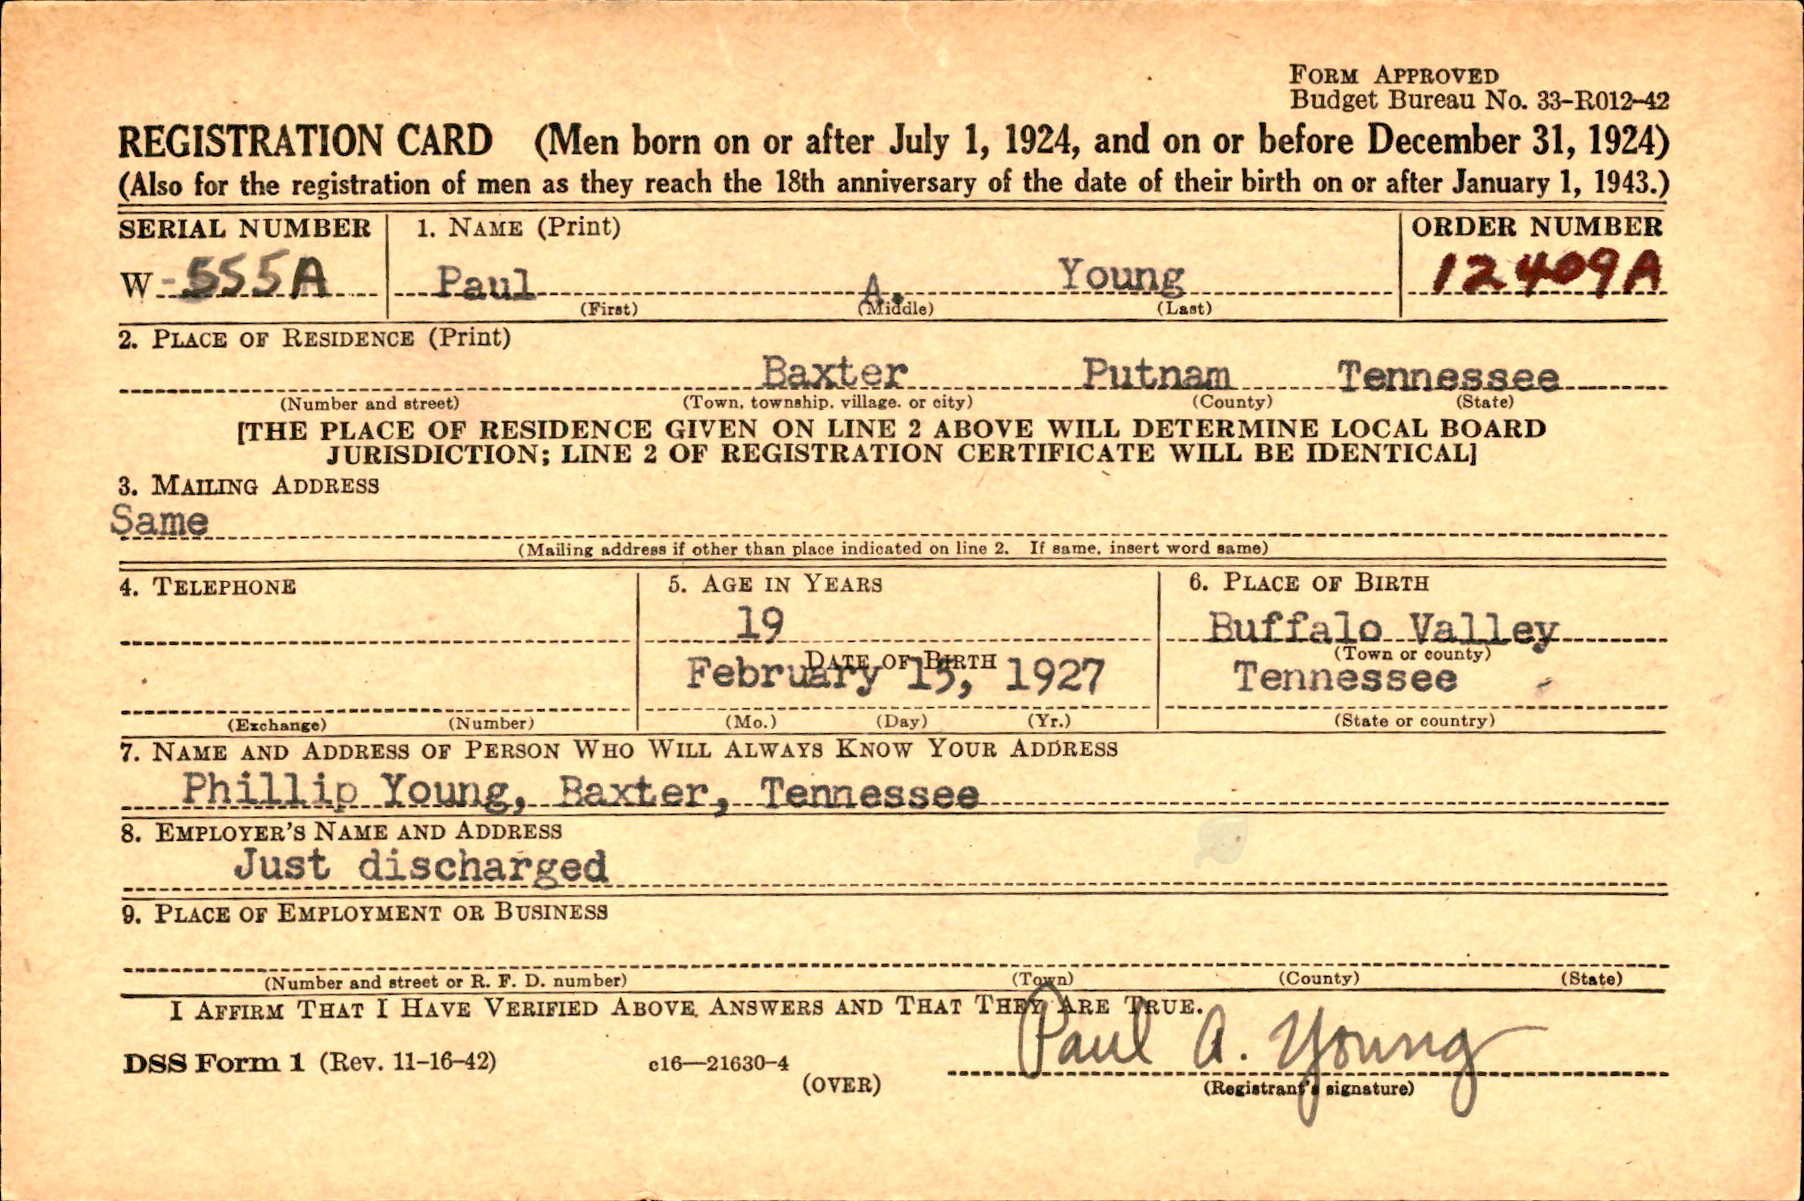 FORM APPROVED
Budget Bureau No. 33-R012-42
REGISTRATION CARD (Men born on or after July 1, 1924, and on or before December 31, 1924)
(Also for the registration of men as they reach the 18th anniversary of the date of their birth on or after January 1, 1943.)
SERIAL NUMBER 1. NAME (Print) ORDER NUMBER
W-555A Paul A. Young 12409A
(First) (Middle) (Last)
2. PLACE OF RESIDENCE (Print)
Baxter Putnam Tennessee
(Number and street) (Town, township, village, or city) (County) (State)
[THE PLACE OF RESIDENCE GIVEN ON LINE 2 ABOVE WILL DETERMINE LOCAL BOARD
JURISDICTION; LINE 2 OF REGISTRATION CERTIFICATE WILL BE IDENTICAL]
3. MAILING ADDRESS
Same
(Mailing address if other than place indicated on line 2. If same, insert word same)
4. TELEPHONE 5. AGE IN YEARS 6. PLACE OF BIRTH
19 Buffalo Valley
DATE OF BIRTH (Town or county)
February 15, 1927 Tennessee
(Exchange) (Number) (Mo.) (Day) (Yr.) (State or country)
7. NAME AND ADDRESS OF PERSON WHO WILL ALWAYS KNOW YOUR ADDRESS
Phillip Young, Baxter, Tennessee
8. EMPLOYER'S NAME AND ADDRESS
Just discharged
9. PLACE OF EMPLOYMENT OR BUSINESS
(Number and street or R. F. D. number) (Town) (County) (State)
I AFFIRM THAT I HAVE VERIFIED ABOVE ANSWERS AND THAT THEY ARE TRUE.
Paul A. Young
DSS Form 1 (Rev. 11-16-42) c16—21630-4
(OVER) (Registrant's signature)